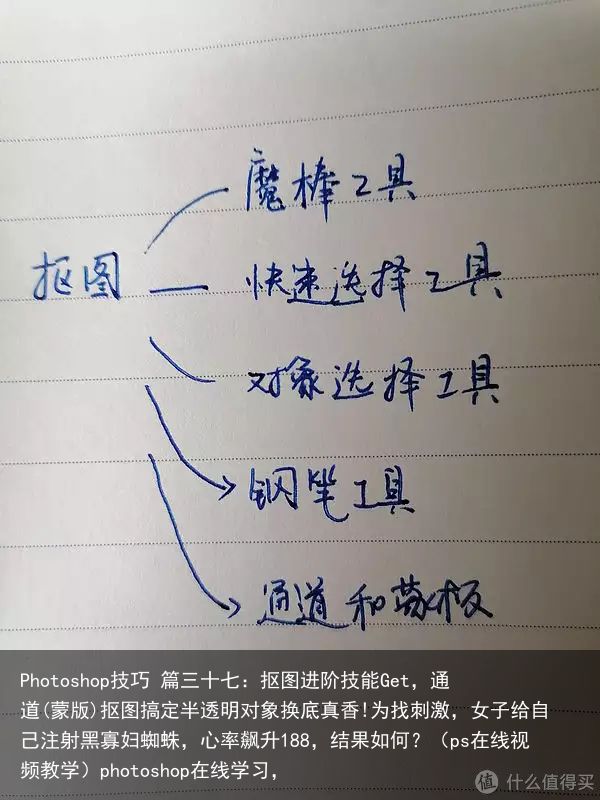 魔棒工具
抠图
快速选择工具
对象选择工具
钢笔工具
通道和蒙板
Photoshop技巧 篇三十七：抠图进阶技能Get，通
道(蒙版)抠图搞定半透明对象换底真香!为找刺激，女子给自
己注射黑寡妇蜘蛛，心率飙升188，结果如何？（ps在线视
频教学）photoshop在线学习，
值 什么值得买